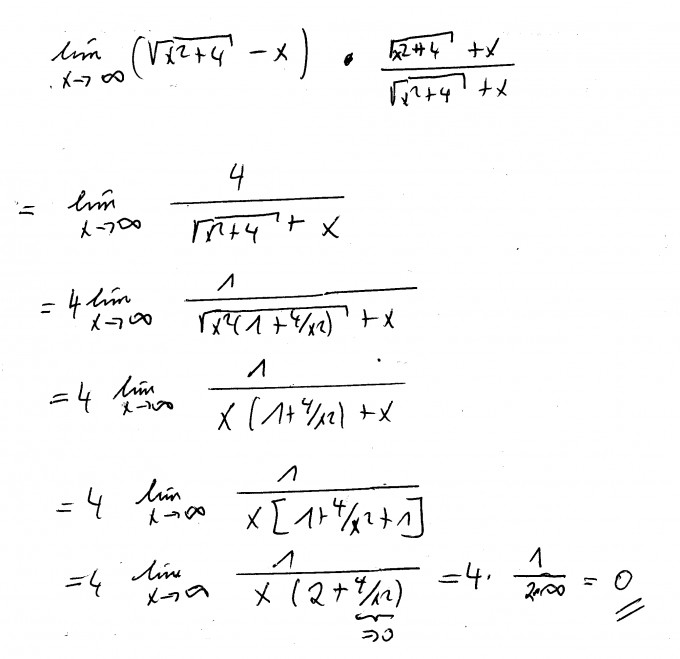 lim x→∞ (√(x²+4) - x) · (√(x²+4) + x)/(√(x²+4) + x)
= lim x→∞ 4/(√(x²+4) + x)
= 4 lim x→∞ 1/(√(x²(1 + 4/x²)) + x)
= 4 lim x→∞ 1/(x (1 + 4/x²) + x)
= 4 lim x→∞ 1/(x [1 + 4/x² + 1])
= 4 lim x→∞ 1/(x (2 + 4/x²)) = 4 · 1/(2·∞) = 0
⇒0